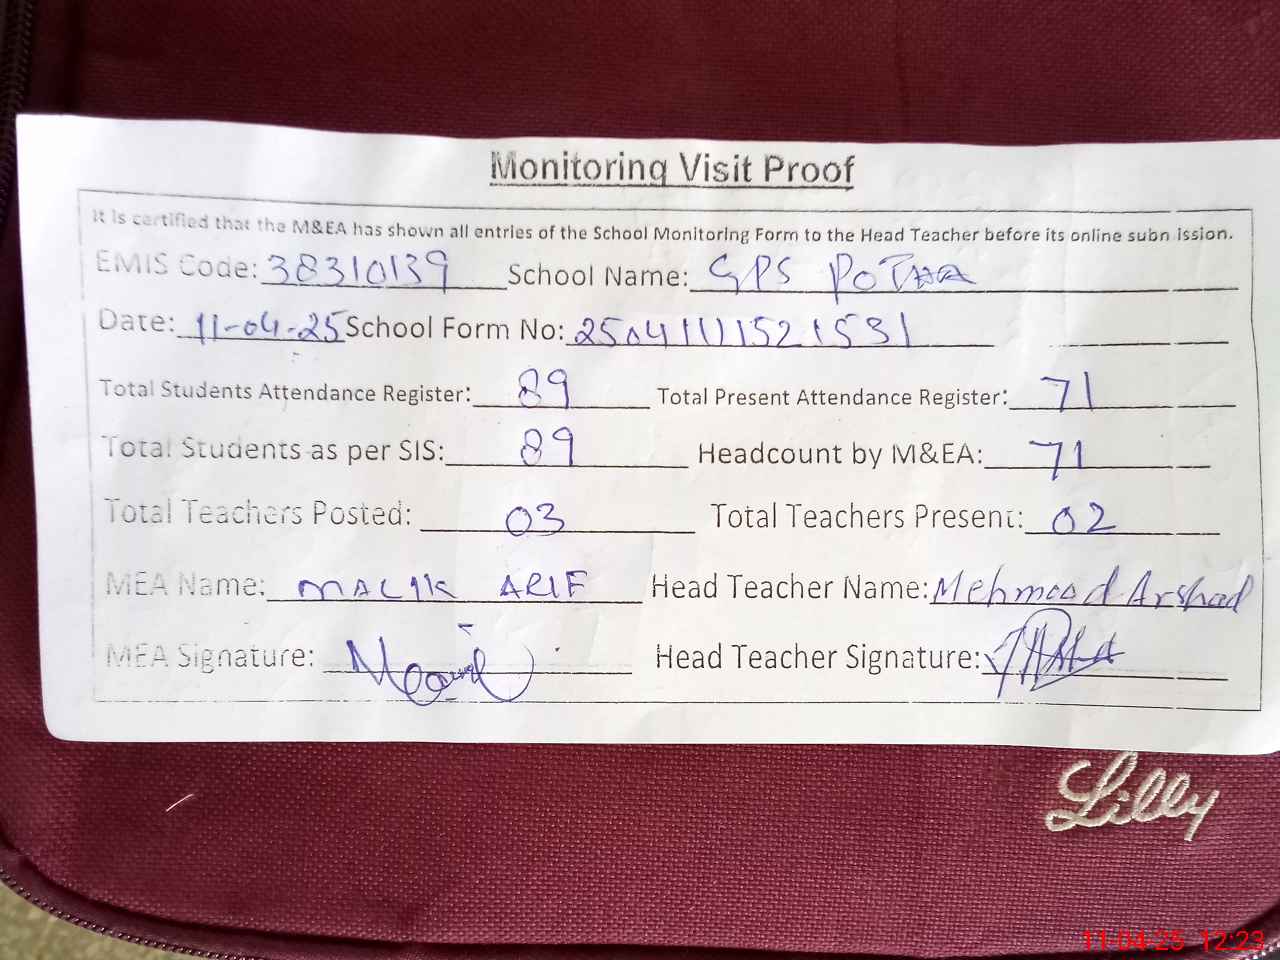 Monitoring Visit Proof
It is certified that the M&EA has shown all entries of the School Monitoring Form to the Head Teacher before its online subn ission.
EMIS Code: 38310139 School Name: GPS POTHA
Date: 11-04-25 School Form No: 2504111521531
Total Students Attendance Register: 89 Total Present Attendance Register: 71
Total Students as per SIS: 89 Headcount by M&EA: 71
Total Teachers Posted: 03 Total Teachers Present: 02
MEA Name: MALIK ARIF Head Teacher Name: Mehmood Arshad
MEA Signature: Head Teacher Signature:
Lilly
11-04-25 12:23